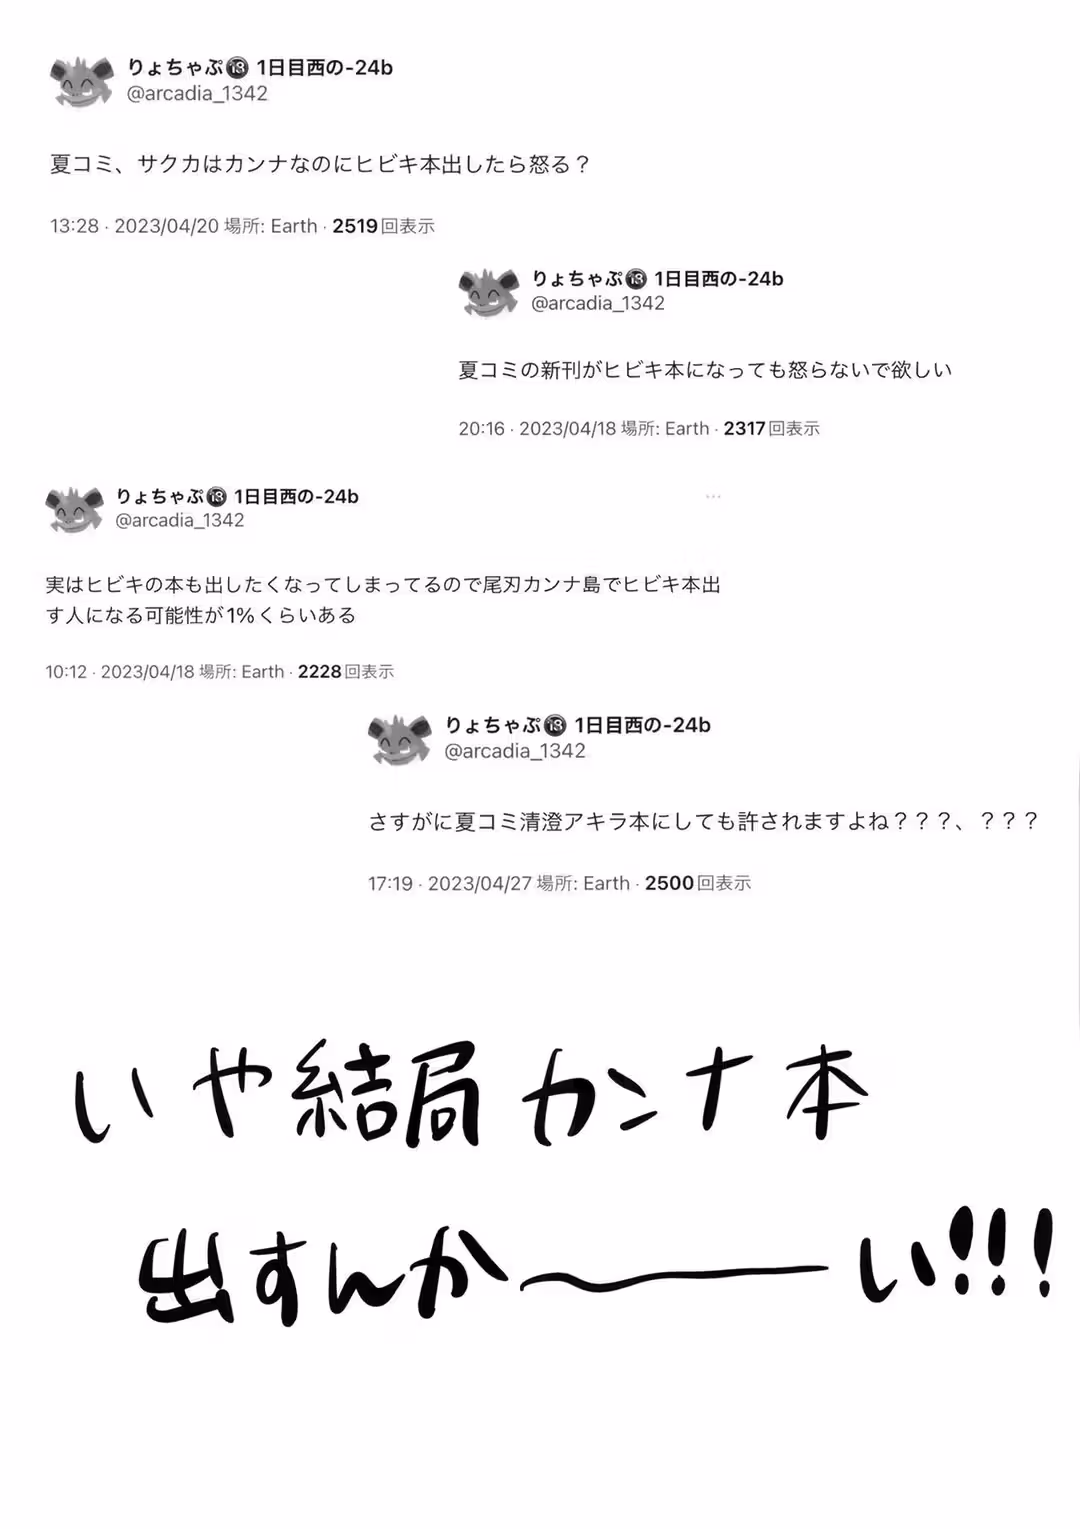 りょちゃぷ🔞 1日目西の-24b
@arcadia_1342
夏コミ、サクカはカンナなのにヒビキ本出したら怒る？
13:28 · 2023/04/20 場所: Earth · 2519回表示
りょちゃぷ🔞 1日目西の-24b
@arcadia_1342
夏コミの新刊がヒビキ本になっても怒らないで欲しい
20:16 · 2023/04/18 場所: Earth · 2317回表示
りょちゃぷ🔞 1日目西の-24b
@arcadia_1342
実はヒビキの本も出したくなってしまってるので尾刃カンナ島でヒビキ本出
す人になる可能性が1%くらいある
10:12 · 2023/04/18 場所: Earth · 2228回表示
りょちゃぷ🔞 1日目西の-24b
@arcadia_1342
さすがに夏コミ清澄アキラ本にしても許されますよね？？？、？？？
17:19 · 2023/04/27 場所: Earth · 2500回表示
いや結局カンナ本
出すんかーい!!!